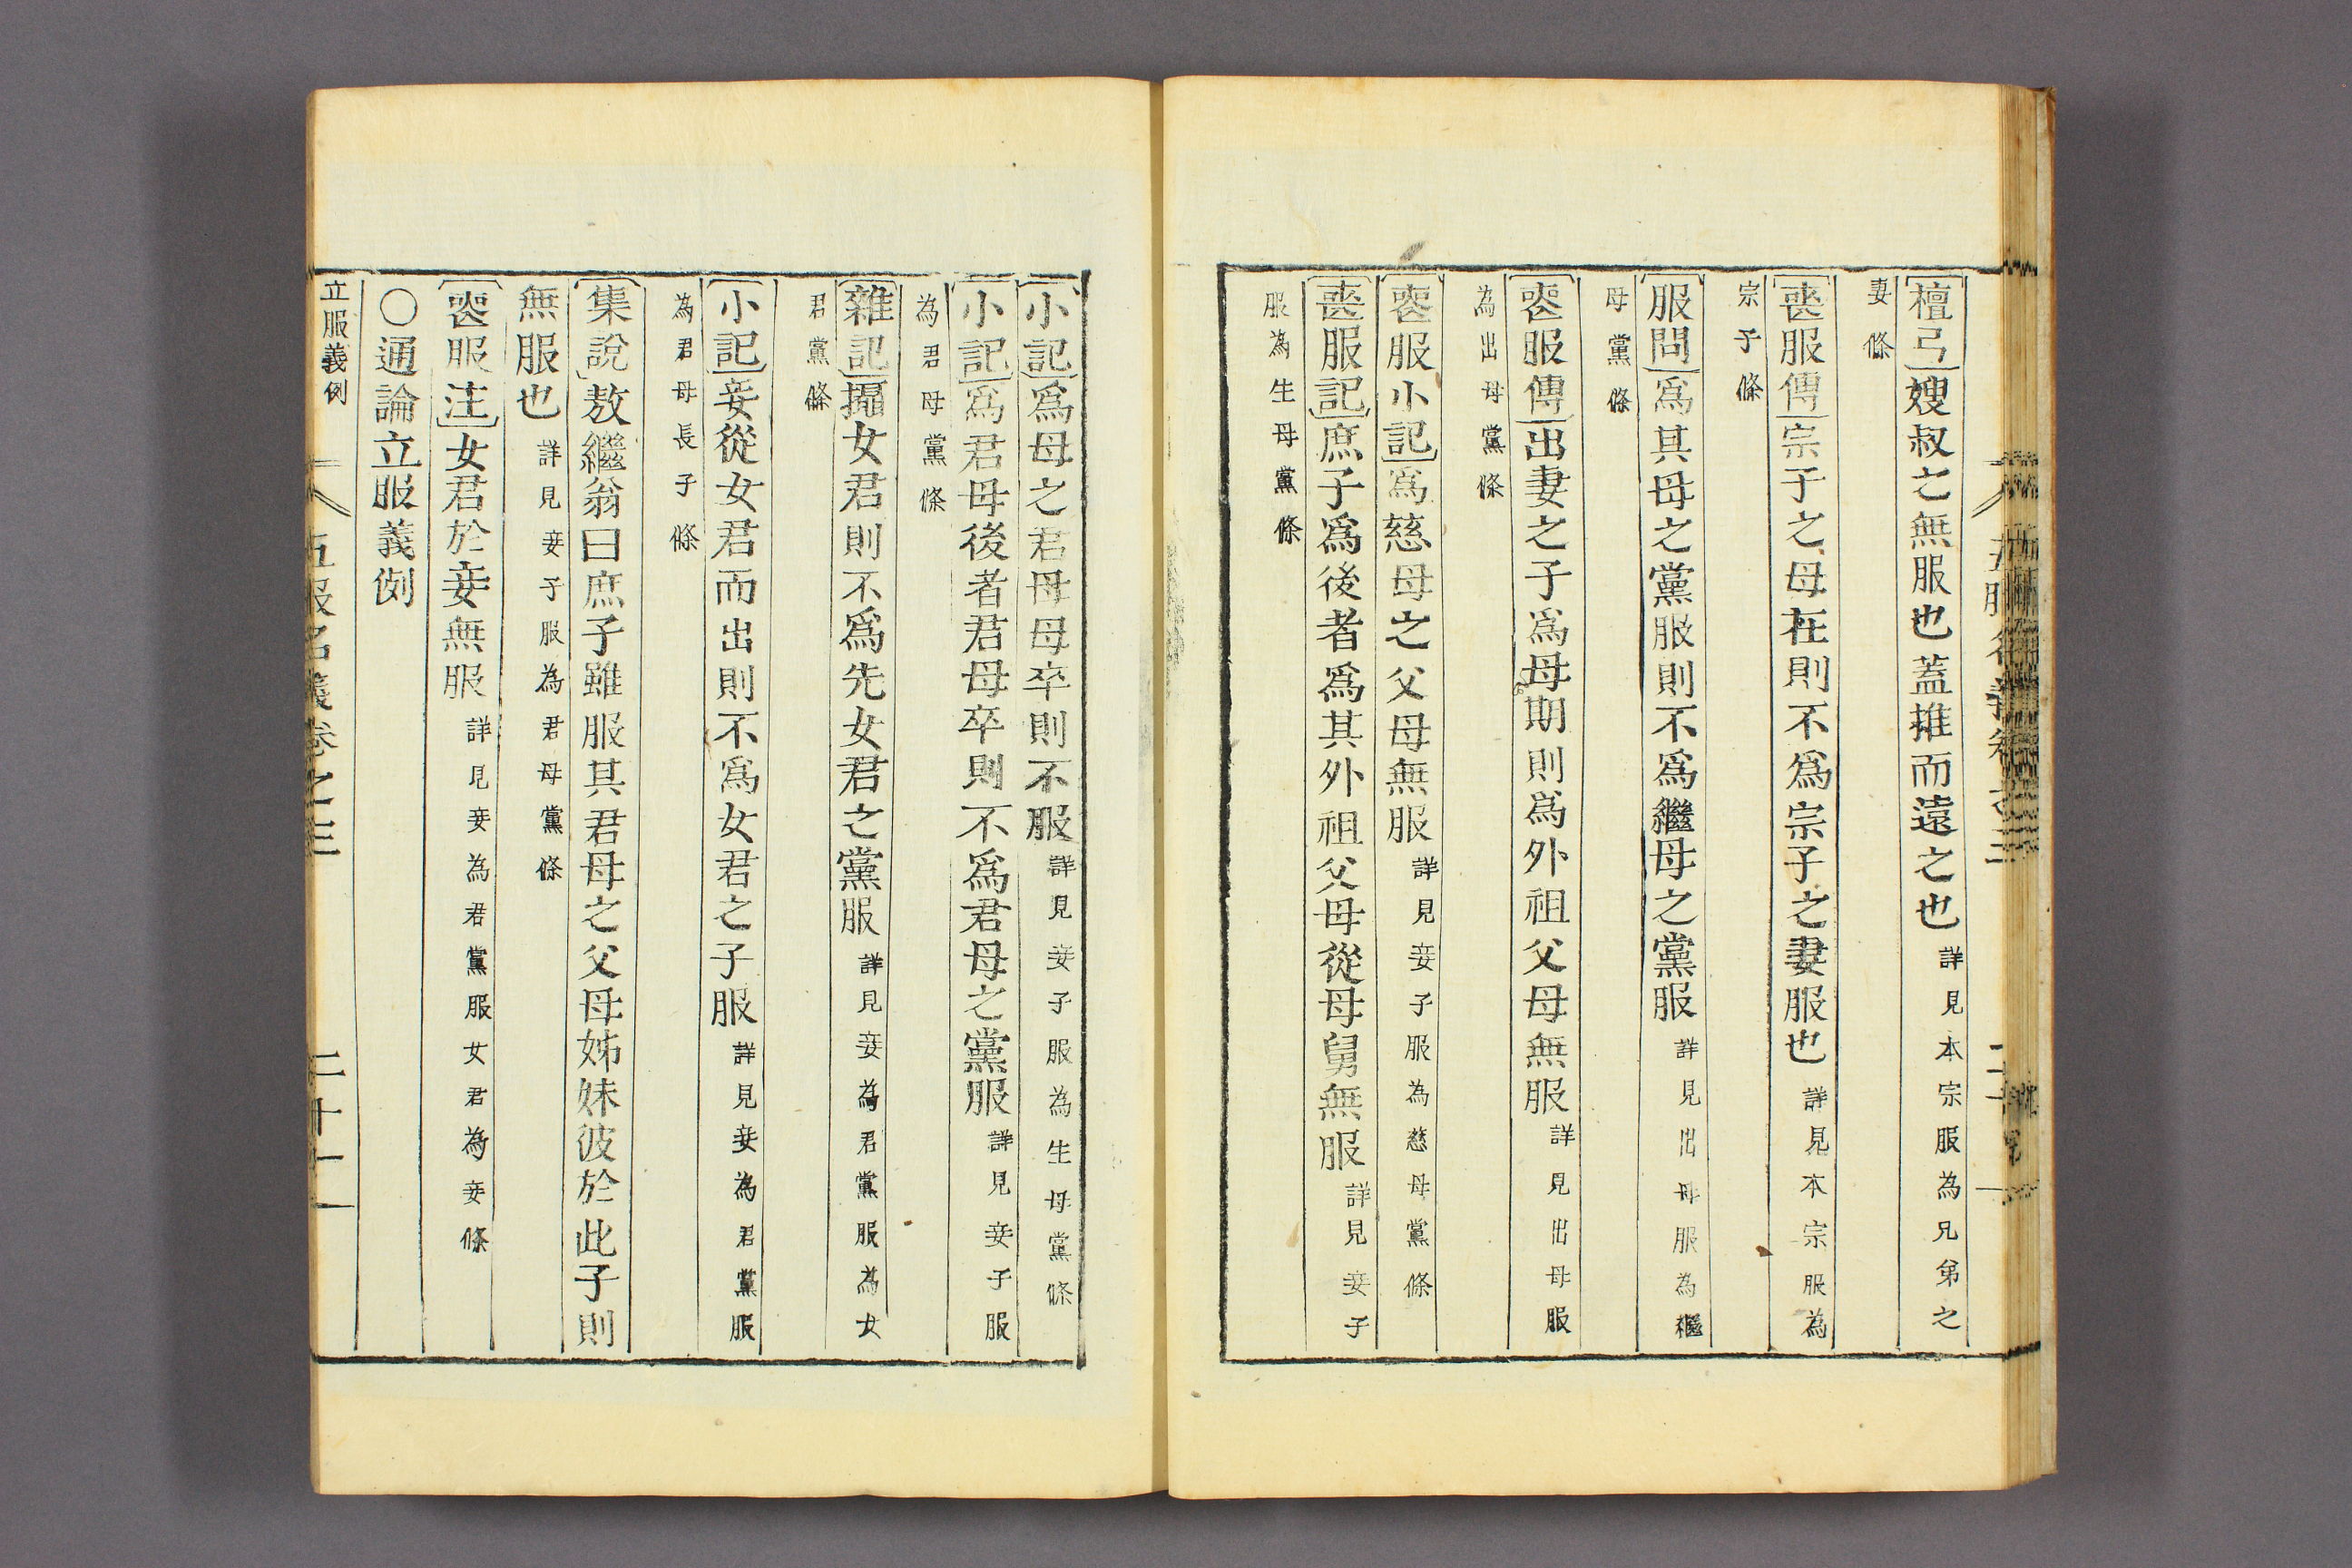 檀弓嫂叔之無服也蓋推而遠之也詳見本宗服為兄弟之
妻條
喪服傳宗子之母在則不爲宗子之妻服也詳見本宗服為
宗子條
服問爲其母之黨服則不爲繼母之黨服詳見出母服為繼
母黨條
喪服傳出妻之子爲母期則爲外祖父母無服詳見出母服
為出母黨條
喪服小記爲慈母之父母無服詳見妾子服為慈母黨條
喪服記庶子爲後者爲其外祖父母從母舅無服詳見妾子
服為生母黨條
小記爲母之君母母卒則不服詳見妾子服為生母黨條
小記爲君母後者君母卒則不爲君母之黨服詳見妾子服
為君母黨條
雜記攝女君則不爲先女君之黨服詳見妾為君黨服為女
君黨條
小記妾從女君而出則不爲女君之子服詳見妾為君黨服
為君母長子條
集說敖繼翁曰庶子雖服其君母之父母姊妹彼於此子則
無服也詳見妾子服為君母黨條
喪服注女君於妾無服詳見妾為君黨服女君為妾條
〇通論立服義例
立服義例
五服名義卷之三
二十一